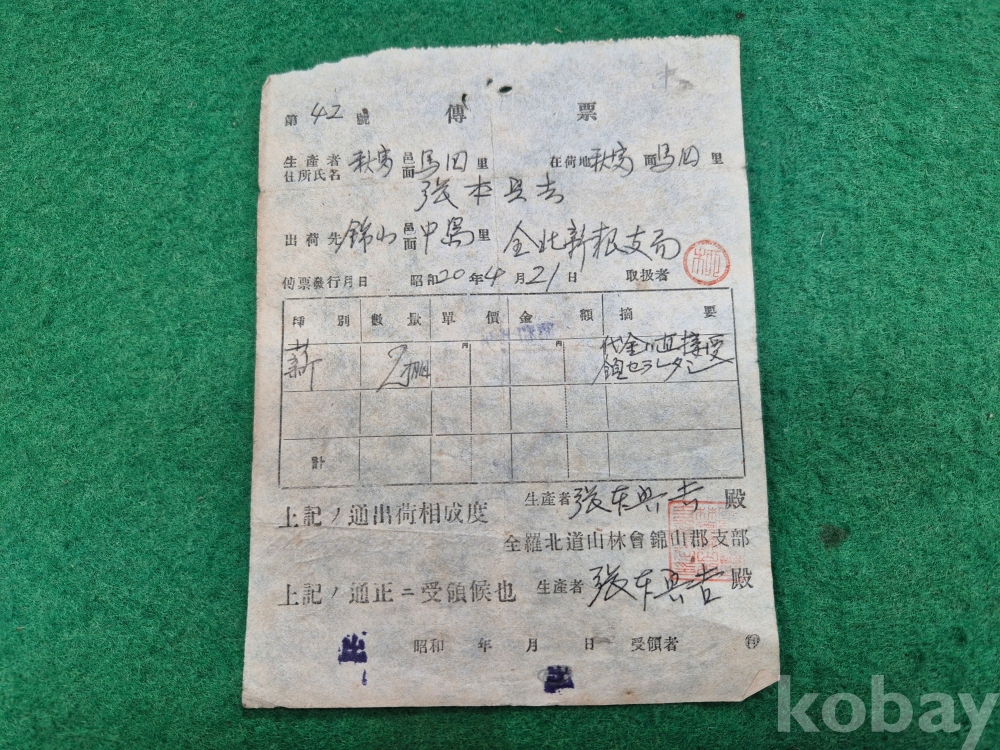 第 42 號 傳 票
生產者 住所氏名 秋富 邑面 馬田 里 在荷地 秋富 面 馬田 里
張本
出荷先 錦山 邑面 中島 里 全北新報支局
傳票發行月日 昭和20年4月21日 取扱者
種別 數量 單價 金額 摘要
薪 2棚 円 円 代金ハ直接受
計
生產者 張本 殿
上記ノ通出荷相成度
全羅北道山林會錦山郡支部
上記ノ通正ニ受領候也 生產者 張本 殿
出 昭和 年 月 日 受領者 ㊞
kobay